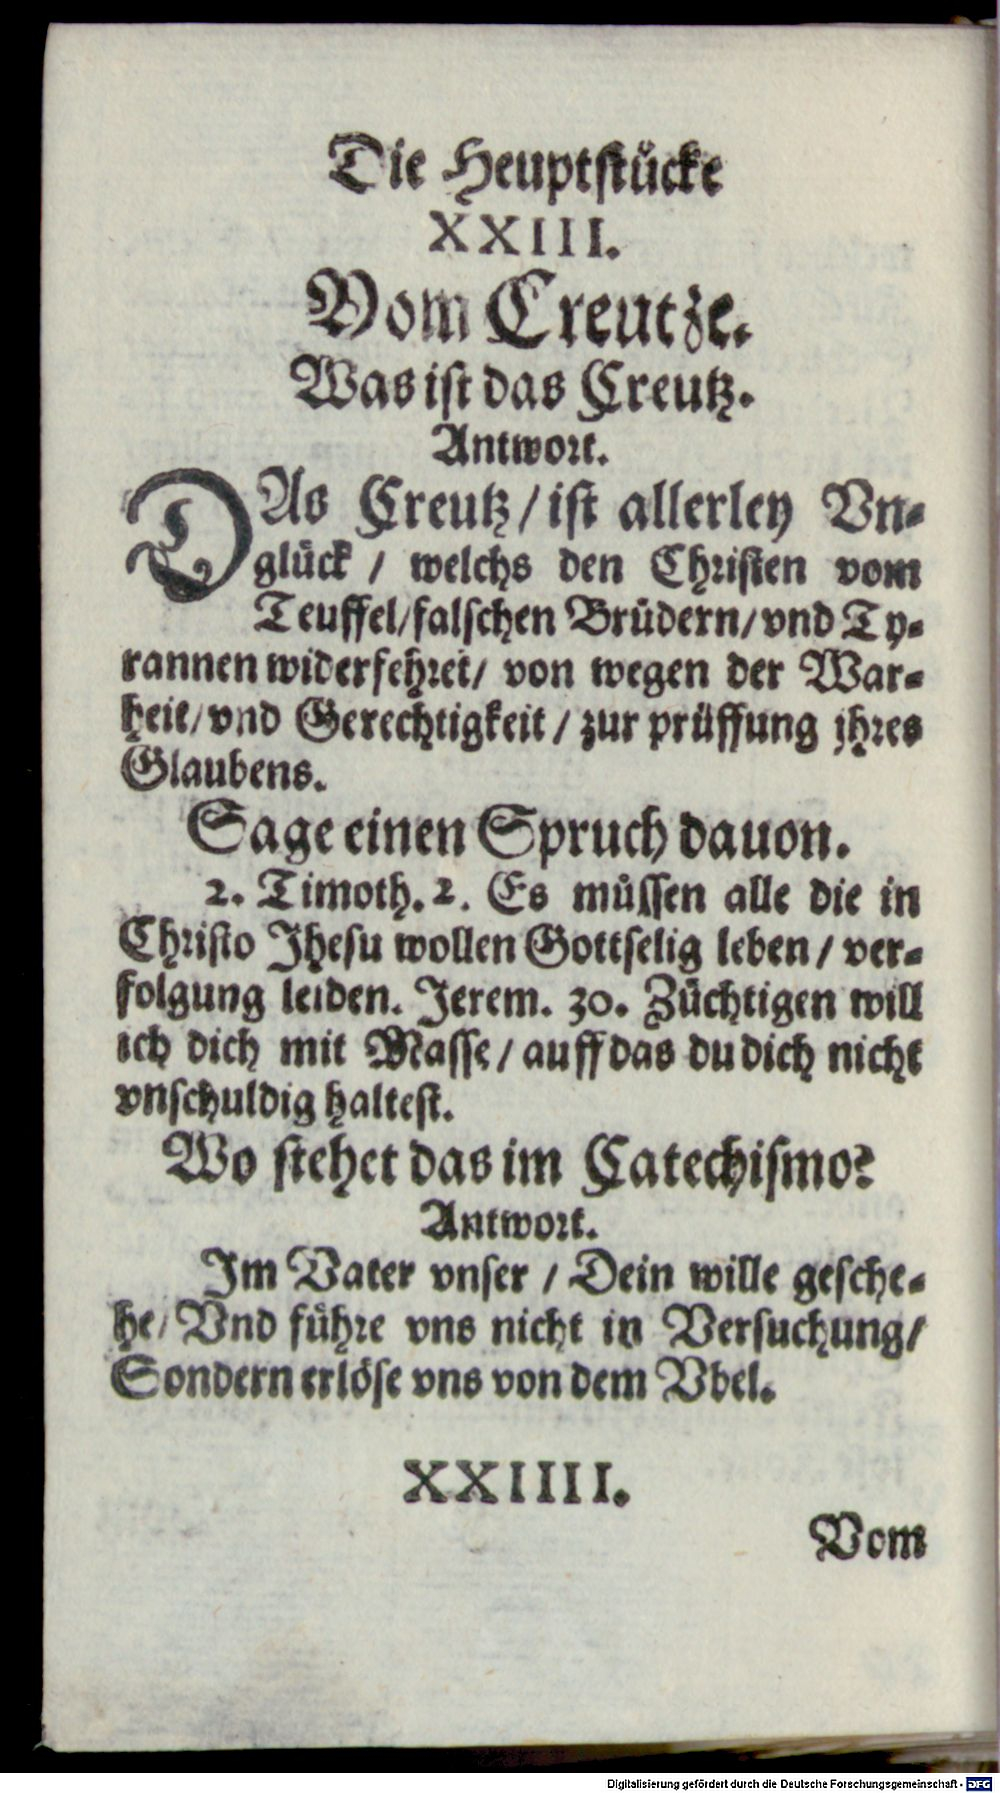 Die Heuptstücke
XXIII.
Vom Creutze.
Was ist das Creutz.
Antwort.
DAs Creutz / ist allerley Vn-
glück / welchs den Christen vom
Teuffel / falschen Brüdern / vnd Ty-
rannen widerfehret / von wegen der War-
heit / vnd Gerechtigkeit / zur prüffung jhres
Glaubens.
Sage einen Spruch dauon.
2. Timoth. 2. Es müssen alle die in
Christo Jhesu wollen Gottselig leben / ver-
folgung leiden. Jerem. 30. Züchtigen will
ich dich mit Masse / auff das du dich nicht
vnschuldig haltest.
Wo stehet das im Catechismo?
Antwort.
Im Vater vnser / Dein wille gesche-
he / Vnd führe vns nicht in Versuchung /
Sondern erlöse vns von dem Vbel.
XXIIII.
Vom
Digitalisierung gefördert durch die Deutsche Forschungsgemeinschaft - DFG